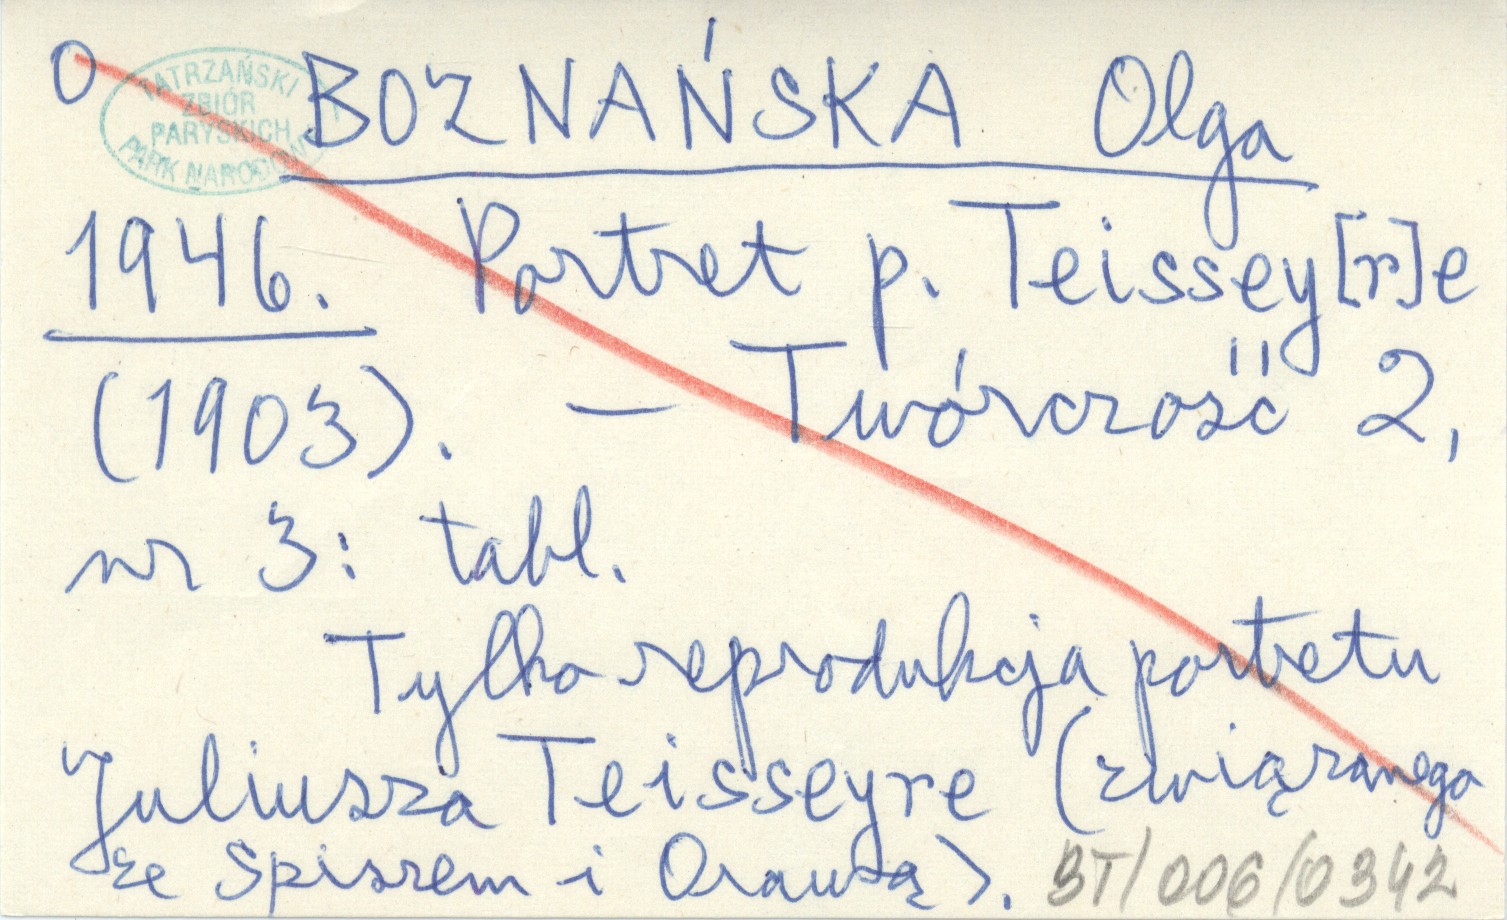 O BOZNAŃSKA Olga
TATRZAŃSKI
ZBIÓR
PARYSKICH
PARK NARODOWY
1946. Portret p. Teissey[r]e
(1903). — Twórczość 2,
nr 3: tabl.
Tylko reprodukcja portretu
Juliusza Teisseyre (związanego
ze Spiszem i Orawą).
BT/006/0342